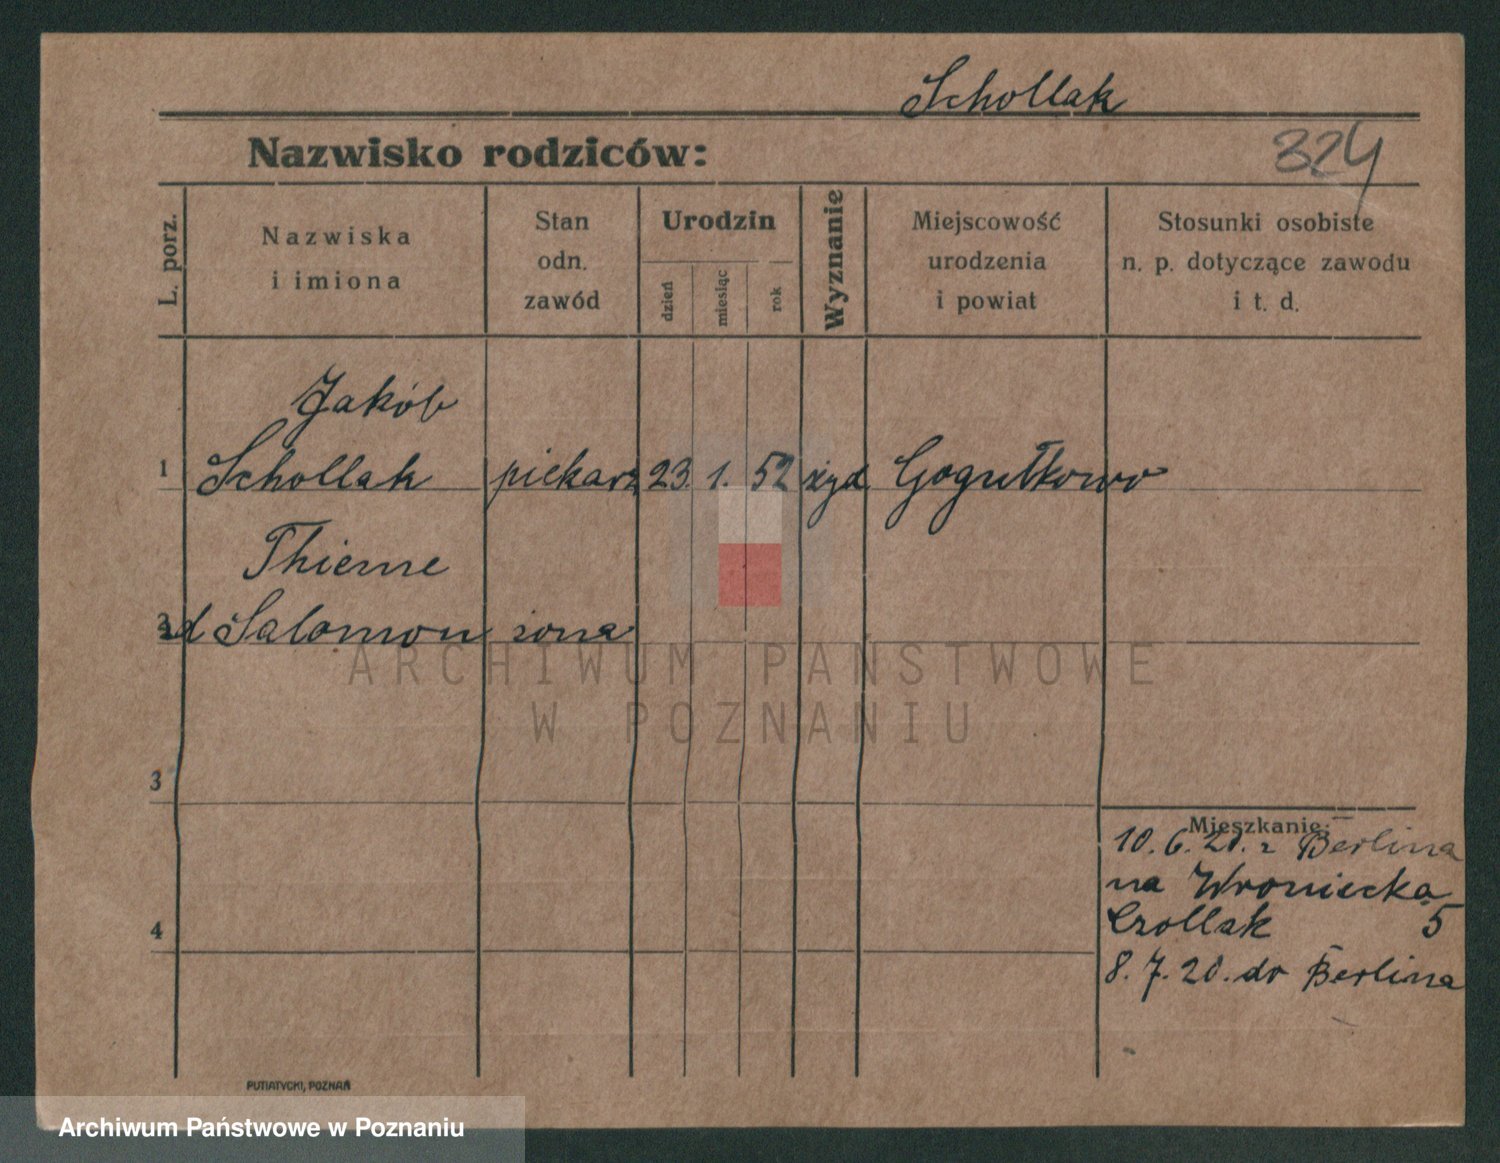 Schollak
Nazwisko rodziców:
324
L. porz.
Nazwiska
i imiona
Stan
odn.
zawód
Urodzin
dzień
miesiąc
rok
Wyznanie
Miejscowość
urodzenia
i powiat
Stosunki osobiste
n. p. dotyczące zawodu
i t. d.
Jakób
1 Schollak piekarz 23. 1. 52 żyd Gogułkowo
Thieme
2 zd Salomon żona
ARCHIWUM PAŃSTWOWE
W POZNANIU
3
Mieszkanie:
10.6.20. z Berlina
na Wroniecka
Czollak 5
4
8.7.20. do Berlina
PUTIATYCKI, POZNAŃ
Archiwum Państwowe w Poznaniu